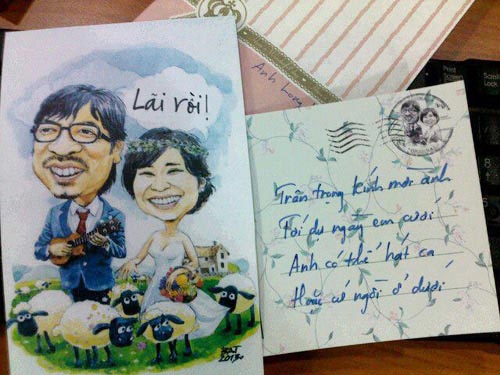 Lãi rồi!
2013
Anh Long
Trân trọng kính mời anh
Tới dự ngày em cưới
Anh có thể hát ca
Hoặc cứ ngồi ở dưới
Print
Scrn
Scroll
Lock